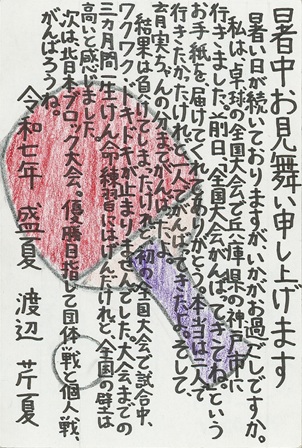 暑中お見舞い申し上げます
暑い日が続いておりますがいかがお過ごしですか。
私は卓球の全国大会で兵庫県の神戸市に
行きました。前日、「全国大会がんばってきてね。」という
お手紙を届けてくれてありがとう。本当は二人で
行きたかったけれど、一人でがんばってきたよ。そして、
実ちゃんの分までがんばったよ。
結果は負けてしまったけれど、初の全国大会で試合中、
ワクワク、ドキドキが止まりませんでした。大会までの
三カ月間一生けん命練習にはげんだけれど、全国の壁は
高いと感じました。
次は、北日本ブロック大会。優勝目指して団体戦と個人戦、
がんばろうね。
令和七年 盛夏 渡辺 芹夏